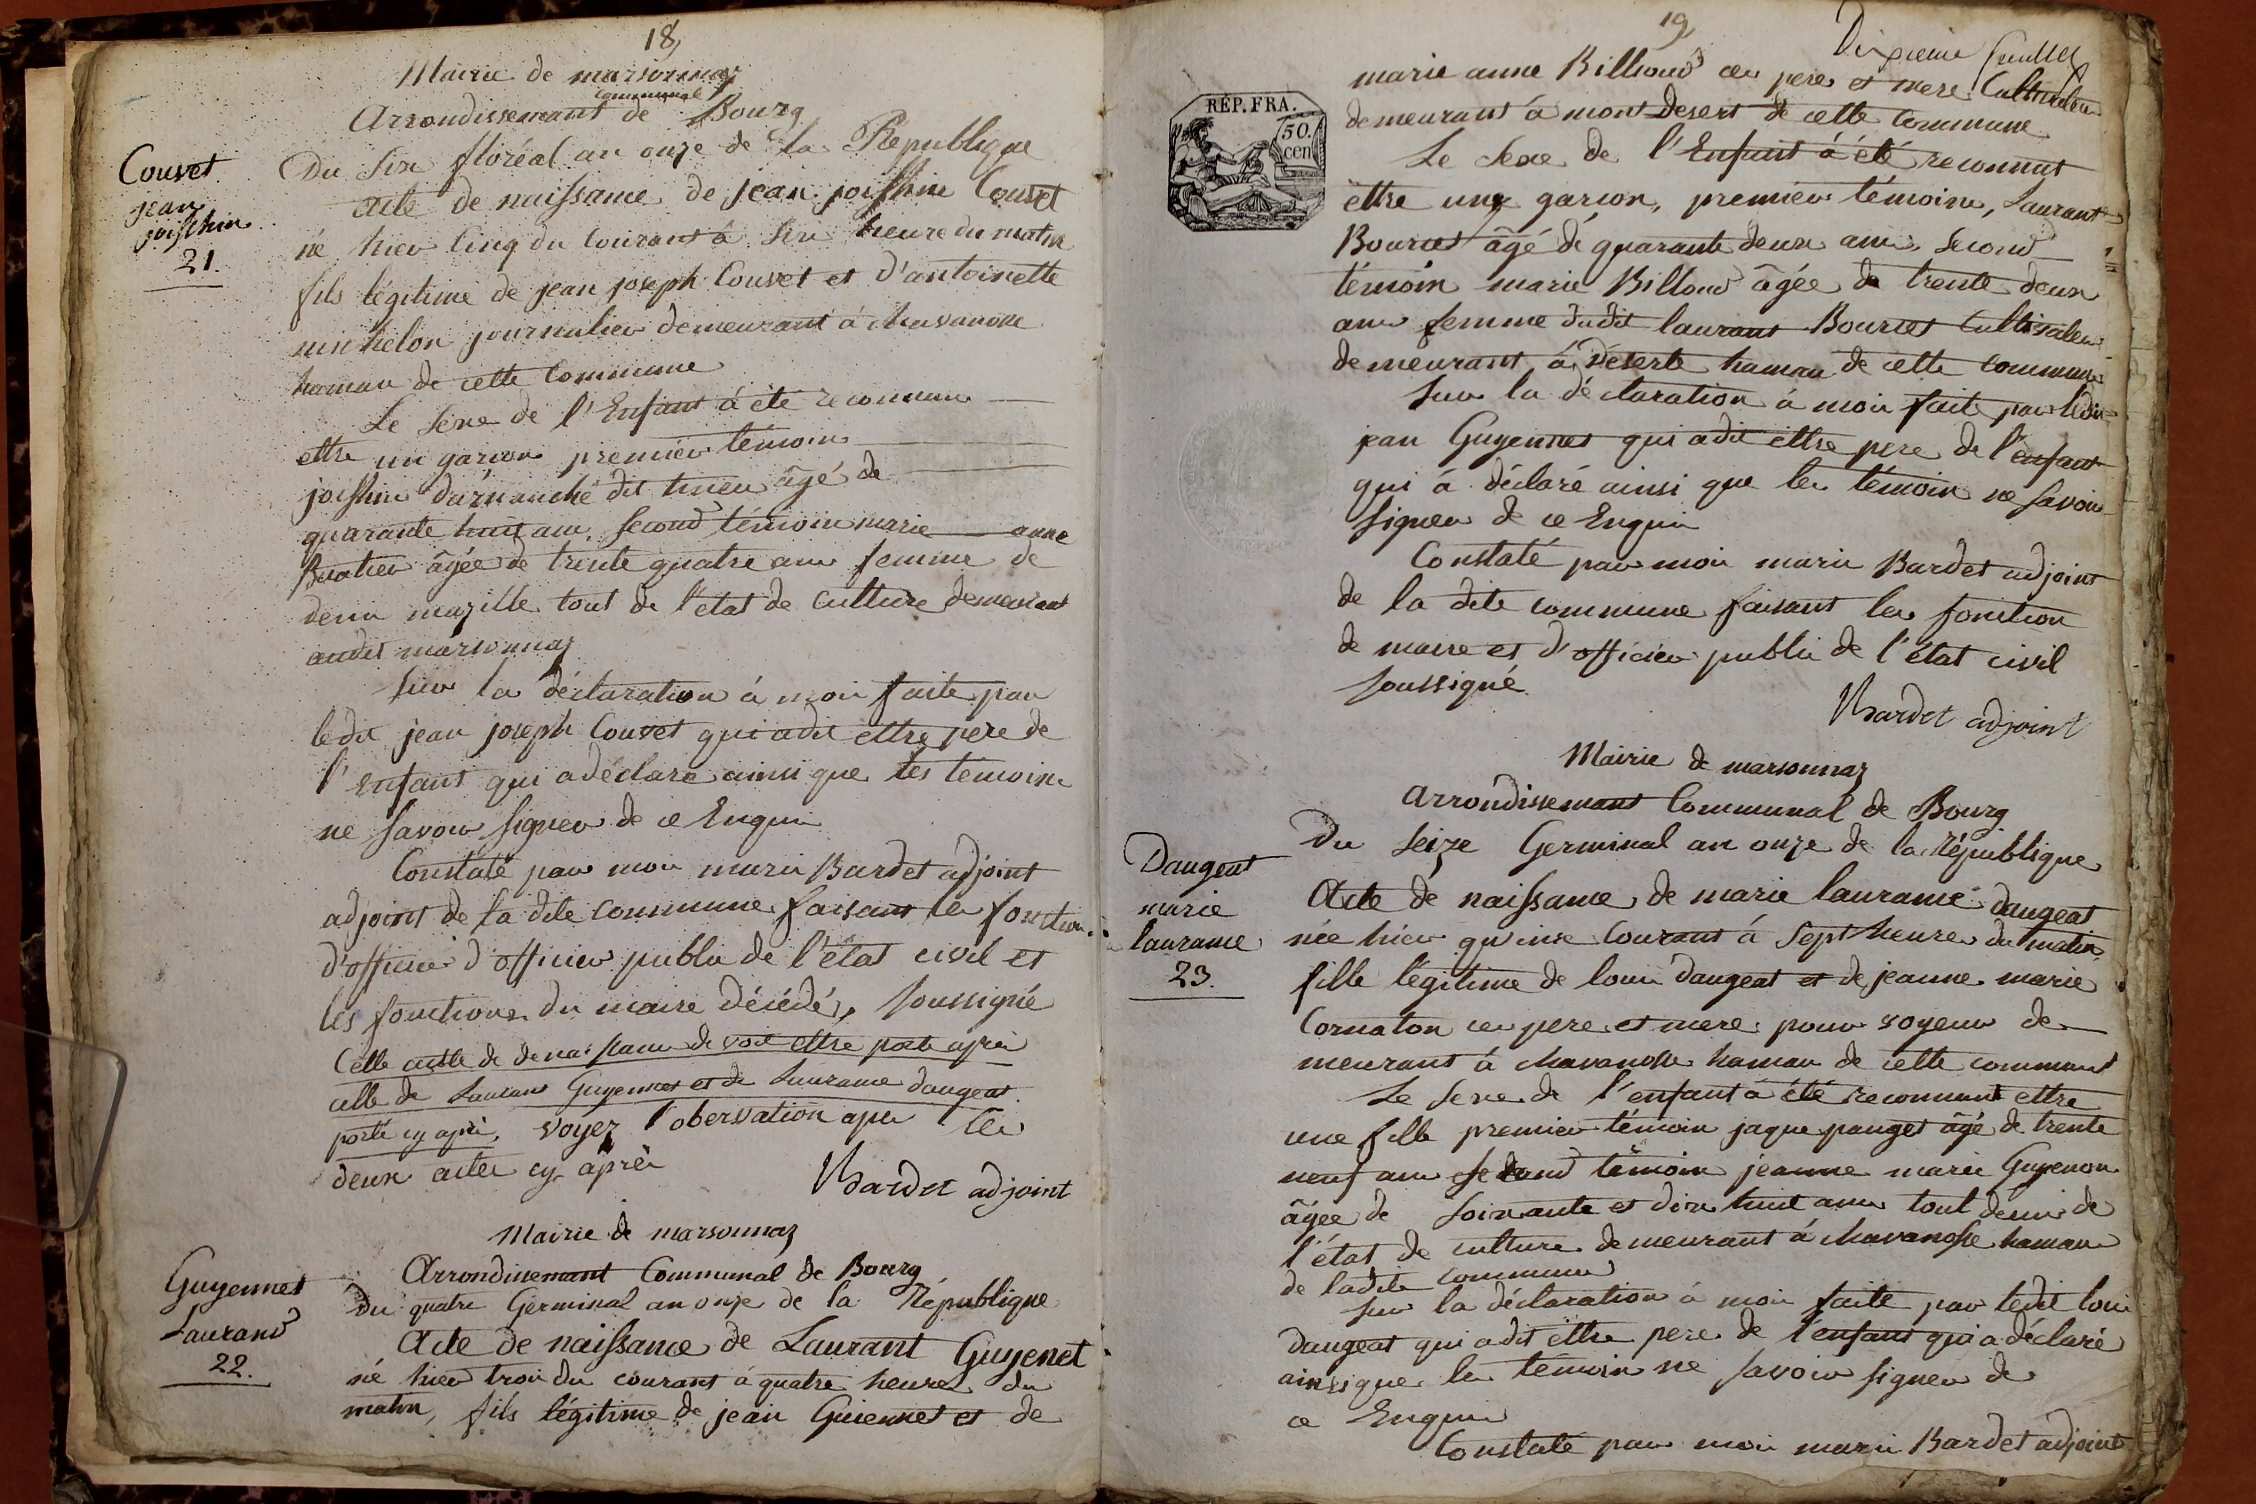 18,
Mairie de marsonnaz
communal
Arrondissemant de Bourg
Couvet
jean
joisthin
21.
Du six floréal an onze de la République
acte de naissance de jean joisthin Couvet
né hier cinq du Courant à six heure du matin
fils légitime de jean joseph Couvet et d'antoinette
michelon journalier demeurant á Chavanosse
hamau de cette Commune
Le sexe de l'Enfant á été reconnu
ettre un garcon premier témoins
joisthin dit âgé de
quarante huit ans, second témoin marie anne
âgée de trente quatre ans femme de
denis mazille tous de l'état de culture demeurant
audit marsonnaz
sur la déclaration á moi faite par
ledit jean joseph Couvet qui a dit ettre pere de
l'Enfant qui a déclaré ainsi que les témoins
ne savoir signer de ce Enquis
Constaté par moi marie Bardet adjoint
adjoint de la dite commune faisant les fonction
d'officier d'officier public de l'état civil et
les fonctions du maire décédé, soussigné
Cette acte de de naissance devoit ettre porté aprés
celle de Laurant Guyennet et de Laurance daugeat
porté cy aprés, voyez l'obervation aprés les
deux actes cy aprés
Bardet adjoint
Mairie de marsonnaz
Arrondissemant Communal de Bourg
Guyennet
Laurand
22.
Du quatre Germinal an onze de la République
Acte de naissance de Laurant Guyenet
né hier trois du courant á quatre heures du
matin, fils légitime de jean Guiennet et de
19,
Dixieme feuillet
marie anne Billioud ces pere et mere Cultivateur
demeurant á mont desert de cette Commune
Le sexe de l'Enfant á été reconnut
ettre un garcon, premier témoins, Laurant
Bourcet âgé de quarante deux ans, second
témoin marie Billoud âgée de trente deux
ans femme dudit laurant Bourcet Cultivateur
demeurant á déserte hamau de cette commune
sur la déclaration á moi fait par ledit
jean Guyennet qui a dit ettre pere de l'enfant
qui á déclaré ainsi que les témoin ne savoir
signer de ce Enquis
Constaté par moi marie Bardet adjoint
de la dite commune faisant les fonction
de maire et d'officier public de l'état civil
soussigné
Bardet adjoint
RÉP. FRA.
50.
cen
Mairie de marsonnaz
Arrondissemant Communal de Bourg
Daugeat
marie
laurance
23.
Du seize Germinal an onze de la République
Acte de naissance de marie laurance daugeat
née hier quinse Courant á sept heures du matin
fille légitime de louis daugeat et de jeanne marie
Cornaton ces pere et mere pour voyeur de-
meurant á Chavanosse hamau de cette commune
Le sexe de l'enfant á été reconnut ettre
une fille premier témoin jaque panget âgé de trente
neuf ans second témoin jeanne marie Guyenon
âgée de soixante et dix huit ans tout deux de
l'état de culture demeurant á Chavanosse hamau
de ladite commune
sur la déclaration á moi faite par ledit louis
daugeat qui a dit ettre pere de l'enfant qui a déclaré
ainsi que les témoin ne savoir signer de
ce Enquis
Constaté par moi marie Bardet adjoint